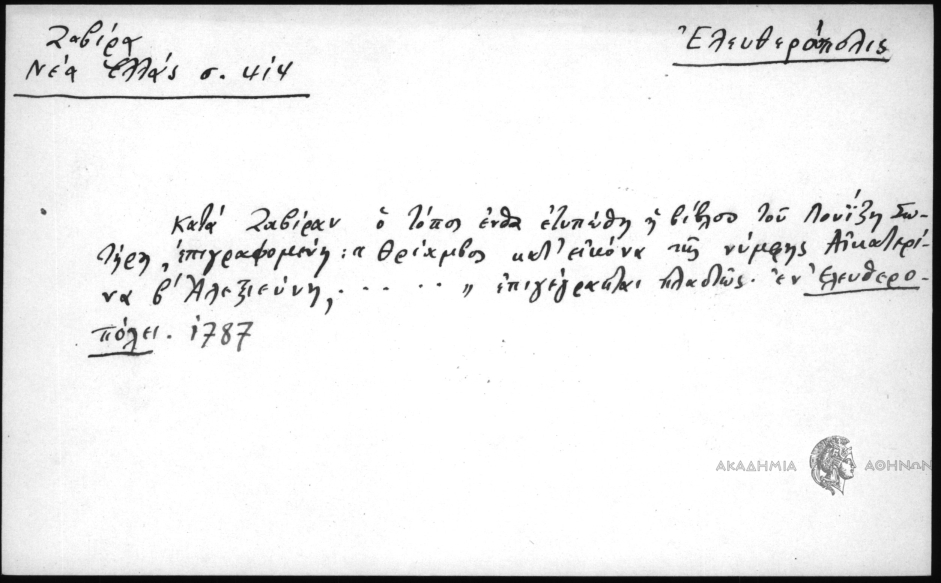 Ζαβίρα
Νέα Ἑλλάς σ. 414
Ἐλευθερόπολις
Κατὰ Ζαβίραν ὁ τόπος ἔνθα ἐτυπώθη ἡ βίβλος τοῦ Λουΐζη Σω-
τήρη, ἐπιγραφομένη: "Θρίαμβος κατ' εἰκόνα τῆς νύμφης Αἰκατερί-
να β' Ἀλεξιεύνη, . . . . . " ἐπιγέγραπται πλαστῶς. ἐν Ἐλευθερο-
πόλει. 1787
ΑΚΑΔΗΜΙΑ ΑΘΗΝΩΝ